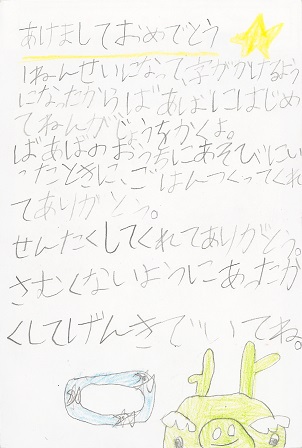 あけましておめでとう
1ねんせいになって、字がかけるよう
になったからばあばにはじめ
てねんがじょうをかくよ。
ばあばのおうちにあそびにい
ったときに、ごはんつくってくれ
てありがとう。
せんたくしてくれてありがとう。
さむくないようにあったか
くしてげんきでいてね。